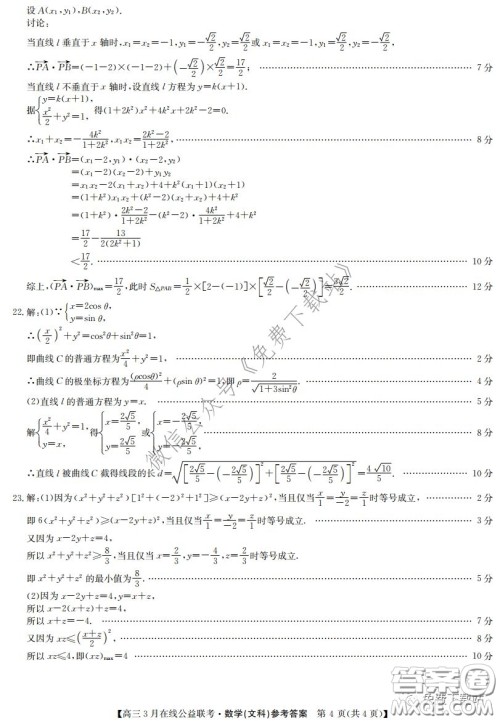 设 A(x₁,y₁),B(x₂,y₂).
讨论:
当直线 l 垂直于 x 轴时,x₁=x₂=-1,y₁=-√2/2,y₂=√2/2或 x₁=x₂=-1,y₁=√2/2,y₂=-√2/2,
∴PA·PB=(-1-2)×(-1-2)+(-√2/2)×√2/2=17/2; 7 分
当直线 l 不垂直于 x 轴时,设直线 l 方程为 y=k(x+1).
据{y=k(x+1), x²/2+y²=1.得(1+2k²)x²+4k²x+2k²-2=0.
∴x₁+x₂=-4k²/(1+2k²),x₁x₂=(2k²-2)/(1+2k²). 8 分
∴PA·PB=(x₁-2,y₁)·(x₂-2,y₂)
=(x₁-2)(x₂-2)+y₁y₂
=x₁x₂-2(x₁+x₂)+4+k²(x₁+1)(x₂+1)
=(1+k²)x₁x₂+(k²-2)(x₁+x₂)+4+k²
=(1+k²)·(2k²-2)/(1+2k²)-(k²-2)·4k²/(1+2k²)+4+k²
=17/2-13/(2(2k²+1))
<17/2. 10 分
综上,(PA·PB)max=17/2,此时 S△PAB=1/2×[2-(-1)]×[√2/2-(-√2/2)]=3√2/2. 12 分
22.解:(1)∵{x=2cos θ, y=sin θ,
∴(x/2)²+y²=cos²θ+sin²θ=1,
即曲线 C 的普通方程为x²/4+y²=1, 2 分
∴曲线 C 的极坐标方程为(ρcosθ)²/4+(ρsin θ)²=1,即ρ=2/√(1+3sin²θ). 4 分
(2)直线 l 的普通方程为 y=x. 5 分
解{x²/4+y²=1, y=x,得{x=2√5/5, y=2√5/5或{x=-2√5/5, y=-2√5/5.
∴直线 l 被曲线 C 截得线段的长 d=√([2√5/5-(-2√5/5)]²+[2√5/5-(-2√5/5)]²)=4√10/5. 10 分
23.解:(1)因为(x²+y²+z²)[1²+(-2)²+1²]≥(x-2y+z)²,当且仅当x/1=y/-2=z/1时等号成立, 2 分
即 6(x²+y²+z²)≥(x-2y+z)²,当且仅当x/1=y/-2=z/1时等号成立. 3 分
又因为 x-2y+z=4,
所以 x²+y²+z²≥8/3,当且仅当 x=2/3,y=-4/3,z=2/3时等号成立.
即 x²+y²+z² 的最小值为8/3. 5 分
(2)因为 x-2y+z=4,y=x+z,
所以 x-2(x+z)+z=4.
所以 x+z=-4. 7 分
又因为 xz≤((x+z)/2)², 8 分
所以 xz≤4,即(xz)max=4. 10 分
【高三 3 月在线公益联考·数学(文科)参考答案 第 4 页(共 4 页)】
微信公众号《免费下载站》